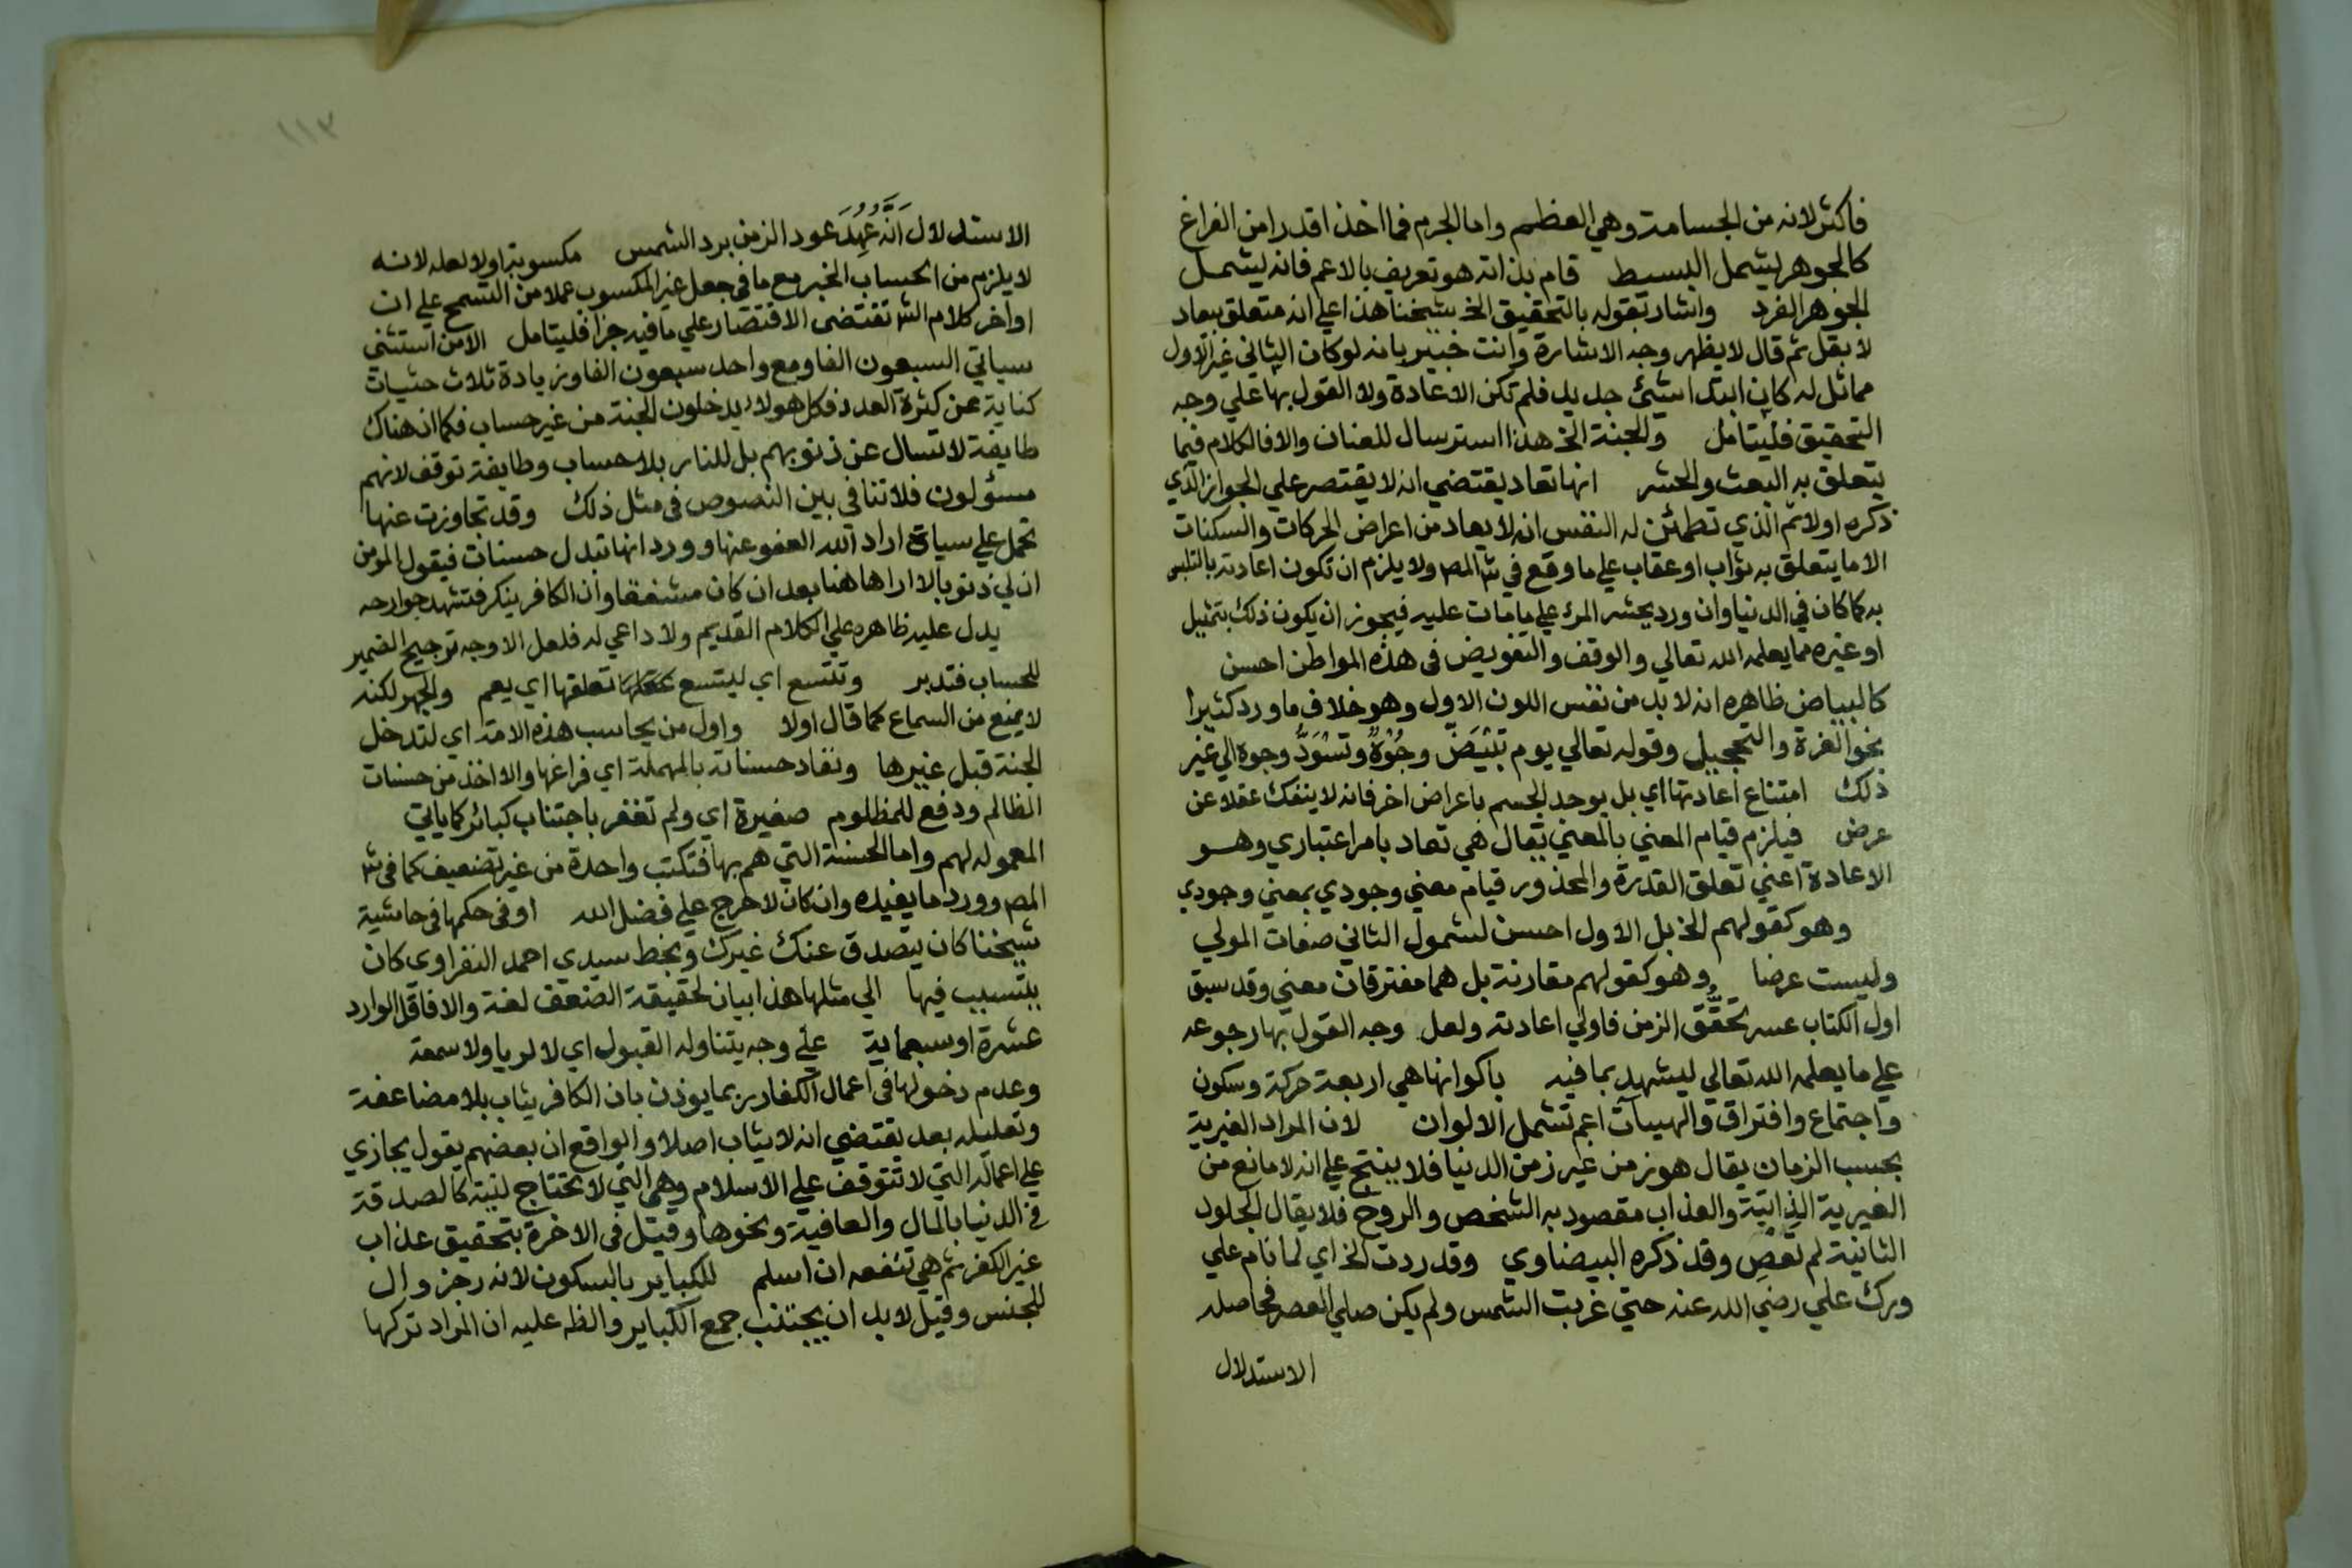 فاكثر لانه من الجسامة وهي العظم واما الجرم فما اخذ قدرا من الفراغ
كالجوهر يشمل البسيط قام بذاته هو تعريف بالاعم فانه يشمل
الجوهر الفرد واشار بقوله بالتحقيق الخ شيخنا هذا علي انه متعلق بيعاد
لا بقل ثم قال لا يظهر وجه الاشارة وانت خبير بانه لو كان الثاني غير الاول
مماثل له كان ابتدا شيئ جديد فلم تكن الاعادة ولا القول بها علي وجه
التحقيق فليتامل والجنة الخ هذا استرسال للعنان والا فالكلام فيما
يتعلق به البعث والحشر انها تعاد يقتضي انه لا يقتصر علي الجواز الذي
ذكره اولا ثم الذي تطمئن له النفس انه لا يعاد من اعراض الحركات والسكنات
الا ما يتعلق به ثواب او عقاب علي ما وقع في ش المص ولا يلزم ان تكون اعادته بالتلبس
به كما كان في الدنيا وان ورد يحشر المرء علي ما مات عليه فيجوز ان يكون ذلك بتمثيل
او غيره مما يعلمه الله تعالي والوقف والتفويض في هذه المواطن احسن
كالبياض ظاهره انه لا بد من نفس اللون الاول وهو خلاف ما ورد كثيرا
نحو الغرة والتحجيل وقوله تعالي يوم تَبْيَضُّ وجُوْهٌ وتَسْوَدُّ وجوه الي غير
ذلك امتناع اعادتها اي بل يوجد الجسم باعراض اخر فانه لا ينفك عقلا عن
عرض فيلزم قيام المعني بالمعني يقال هي تعاد بامر اعتباري وهو
الاعادة اعني تعلق القدرة والمحذور قيام معني وجودي بمعني وجودي
وهو كقولهم الخ بل الاول احسن لشمول الثاني صفات المولي
وليست عرضا وهو كقولهم مقارنة بل هما مفترقان معني وقد سبق
اول الكتاب عسر تَحَقُّق الزمن فاولي اعادته ولعل وجه القول بها رجوعه
علي ما يعلمه الله تعالي ليشهد بما فيه باكوانها هي اربعة حركة وسكون
واجتماع وافتراق والهيبات اعم تشمل الالوان لان المراد الغيرية
بحسب الزمان يقال هو زمن غير زمن الدنيا فلا ينتج علي انه لا مانع من
الغيرية الذاتية والعذاب مقصود به الشخص والروح فلا يقال الجلود
الثانية لم تعصِ وقد ذكره البيضاوي وقد ردت الخ اي لما نام علي
ورك علي رضي الله عنه حتي غربت الشمس ولم يكن صلي العصر فحاصله
الاستدلال
١١٣
الاستدلال اَنَّه عُهِدَ عود الزمن برد الشمس مكسوبة اولا لعله لانه
لا يلزم من الحساب الخبر مع ما في جعل غير المكسوب عملا من التسمح علي ان
اواخر كلام الش تقتضي الاقتصار علي ما فيه جزا فليتامل الا من استثني
سياتي السبعون الفا ومع واحد سبعون الفا وزيادة ثلاث حثيات
كناية عن كثرة العدد فكل هولاء يدخلون الجنة من غير حساب فكما ان هناك
طايفة لا تسال عن ذنوبهم بل للنار بلا حساب وطايفة توقف لانهم
مسؤلون فلا تنافي بين النصوص في مثل ذلك وقد تجاوزت عنها
تحمل علي سيات اراد الله العفو عنها وورد انها تبدل حسنات فيقول المومن
ان لي ذنوبا لا اراها هنا بعد ان كان مشفقا وان الكافر ينكر فتشهد جوارحه
يدل عليه ظاهره علي الكلام القديم ولا داعي له فلعل الاوجه ترجيح الضمير
للحساب فتدبر وتتسع اي ليتسع تعلقها اي يعم والجهر لكنه
لا يمنع من السماع كما قال اولا واول من يحاسب هذه الامة اي لتدخل
الجنة قبل غيرها ونفاد حسناته بالمهملة اي فراغها والاخذ من حسنات
الظالم ودفع للمظلوم صغيرة اي ولم تغفر باجتناب كبائر كما ياتي
المعموله لهم واما الحسنة التي هم بها فتكتب واحدة من غير تضعيف كما في ش
المص وورد ما يفيده وان كان لا حرج علي فضل الله او في حكمها في حاشية
شيخنا كان يتصدق عنك غيرك وبخط سيدي احمد النفراوي كان
يتسبب فيها الي مثلها هذا بيان لحقيقة الضعف لغة والا فاقل الوارد
عشرة او سبعماية علي وجه يتناوله القبول اي لا لريا ولا سمعة
وعدم دخولها في اعمال الكفار ربما يوذن بان الكافر يثاب بلا مضاعفة
وتعليله بعد يقتضي انه لا يثاب اصلا والواقع ان بعضهم يقول يجازي
علي اعماله التي لا تتوقف علي الاسلام وهي التي لا تحتاج لنية كالصدقة
في الدنيا بالمال والعافية ونحوها وقيل في الاخرة بتحقيق عذاب
غير الكفر ثم هي تنفعه ان اسلم للكباير بالسكون لانه رجز وال
للجنس وقيل لا بد ان يجتنب جمع الكباير والظ عليه ان المراد تركها